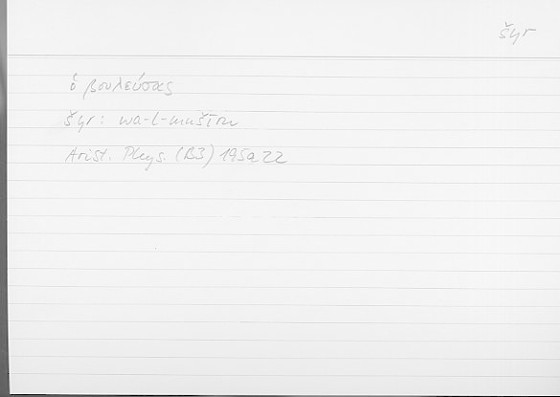 šyr
ὁ βουλεύσας
šyr: wa-l-mušīru
Arist. Phys. (B3) 195a22